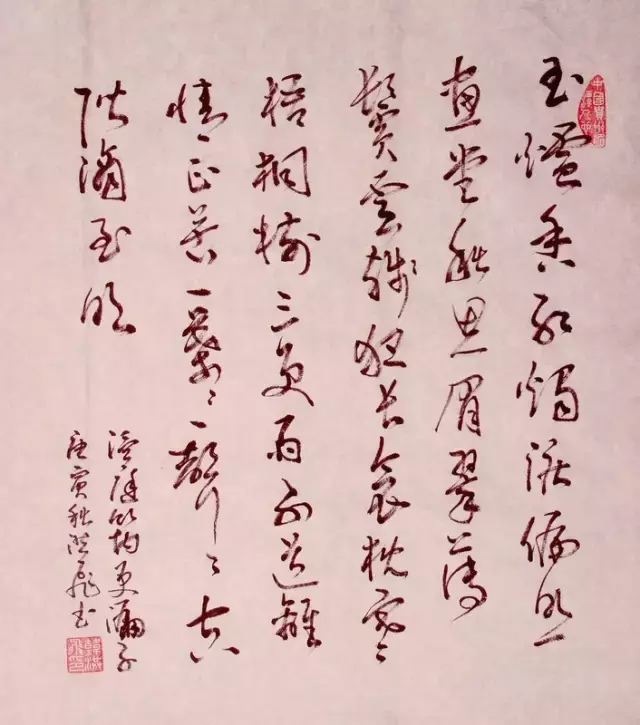 玉爐香紅燭淚偏照
畫堂秋思眉翠薄
鬢雲殘夜長衾枕寒
梧桐樹三更雨不道離
情正苦一葉〻一聲〻空
階滴到明
溫庭筠更漏子
庚寅秋洪飛書